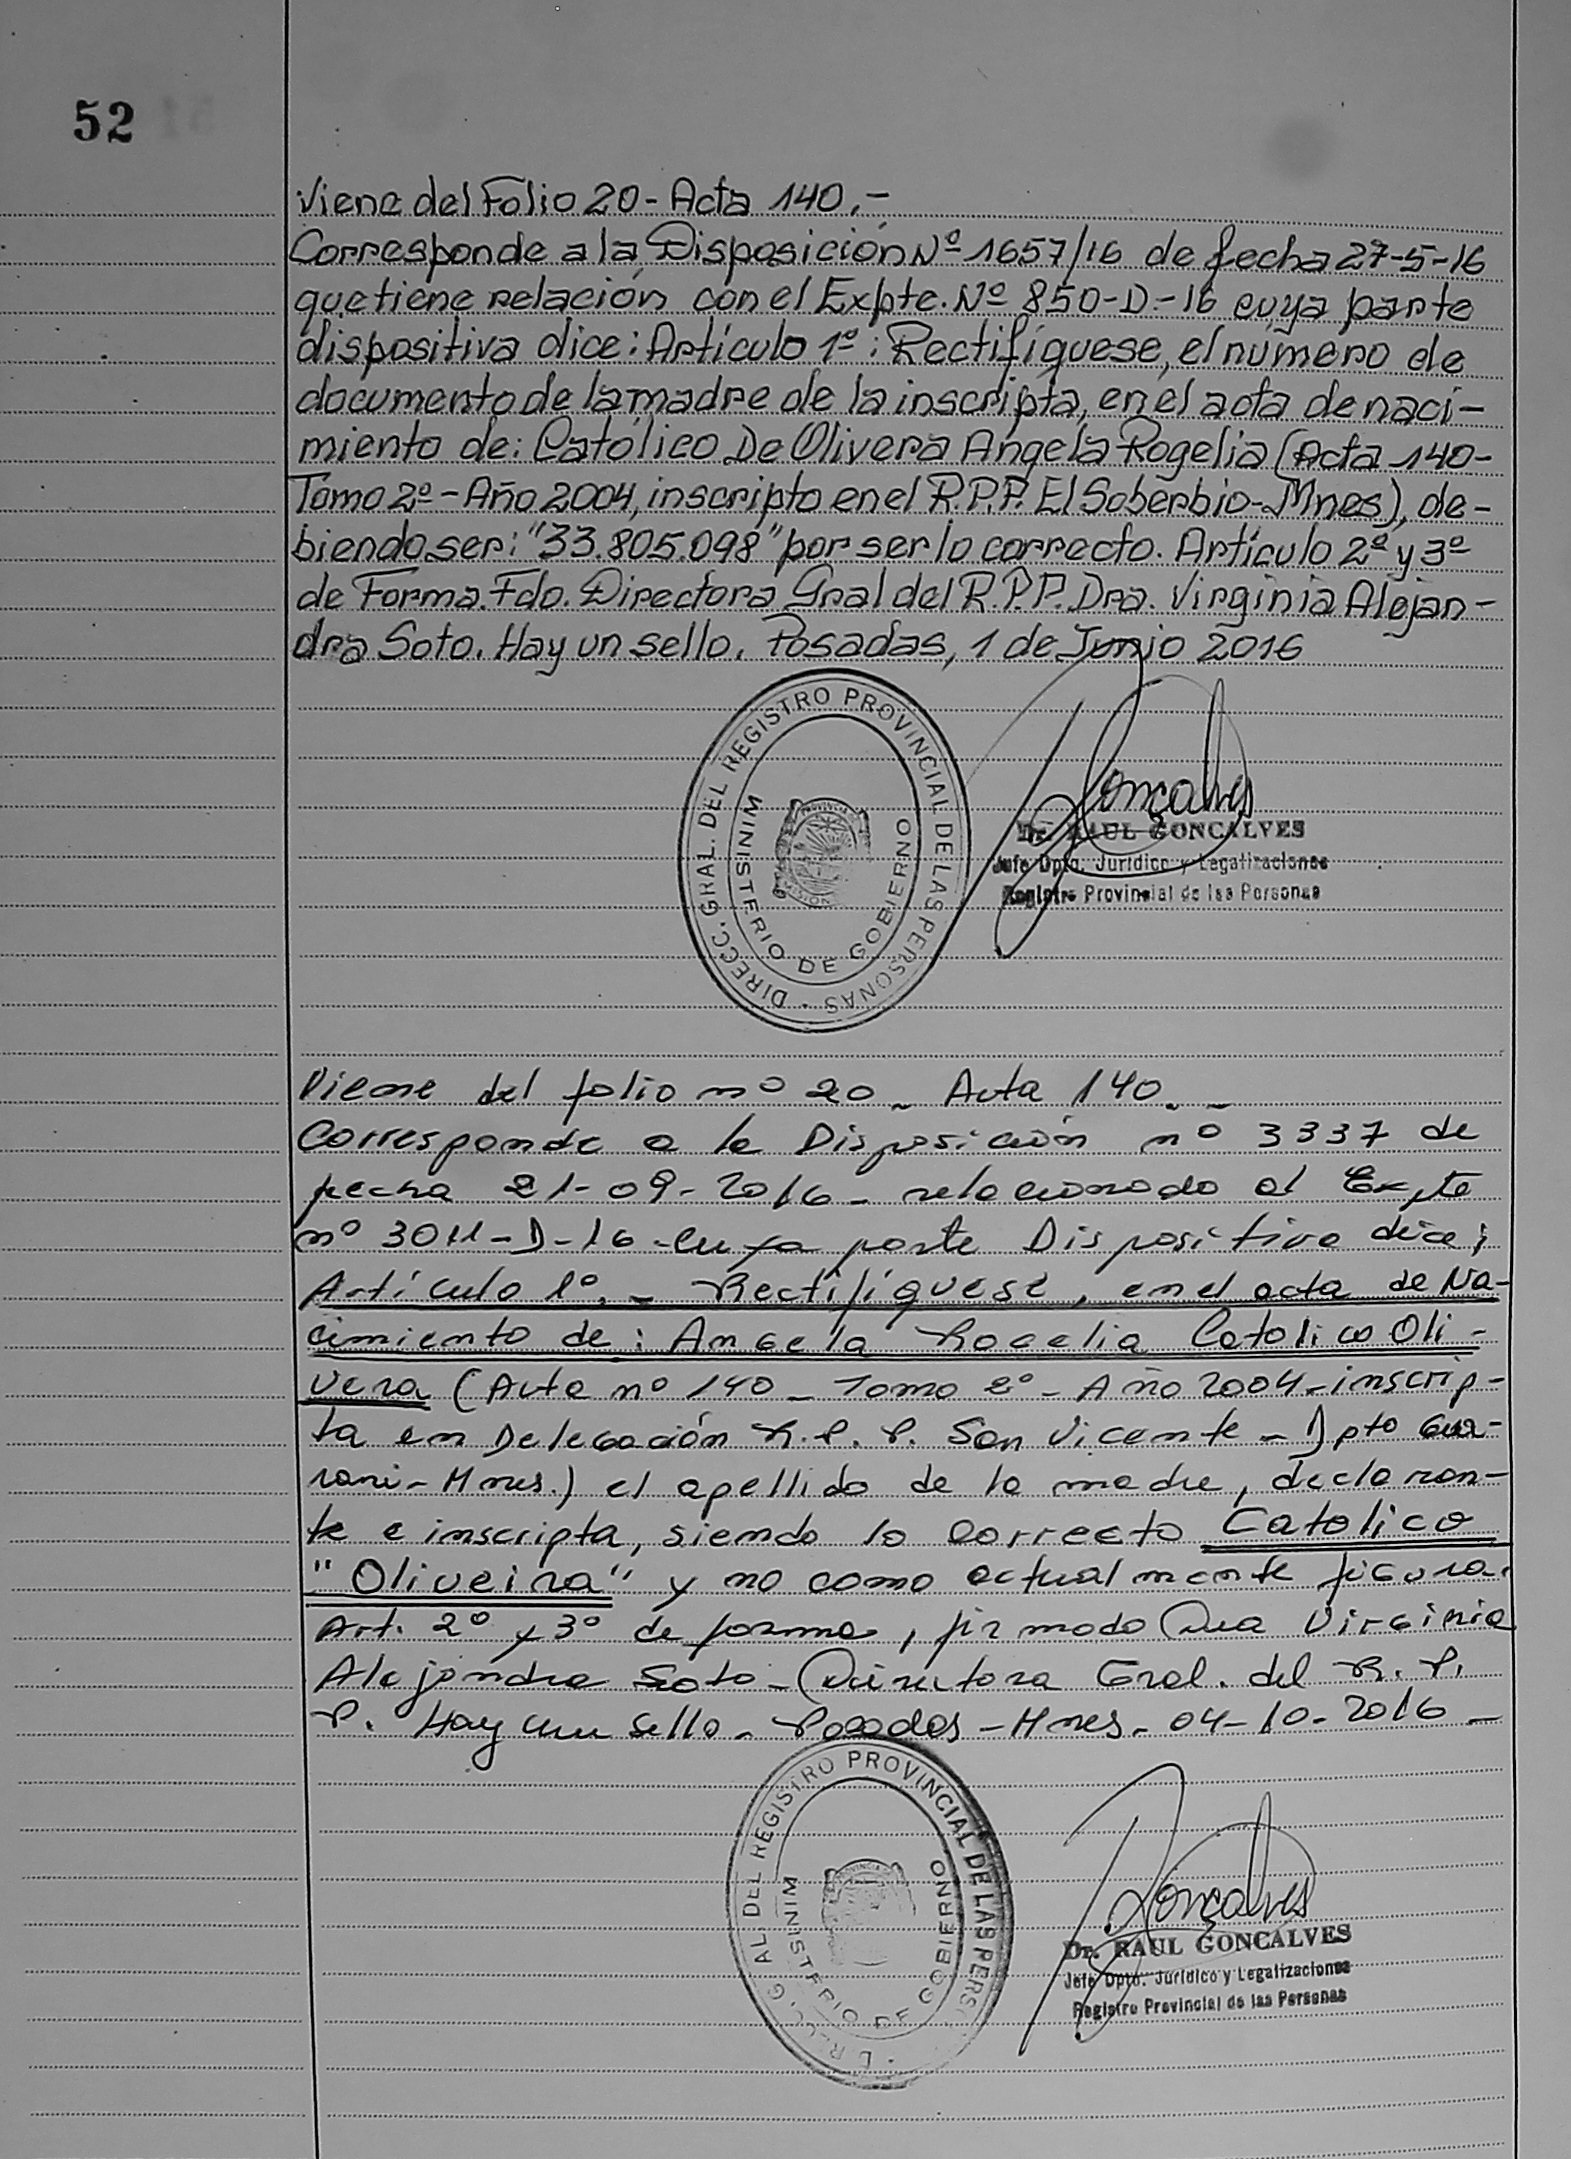 52
Viene del Folio 20 - Acta 140.-
Corresponde a la Disposición Nº 1657/16 de fecha 27-5-16
que tiene relación con el Expte. Nº 850-D-16 cuya parte
dispositiva dice: Artículo 1º: Rectifíquese, el número de
documento de la madre de la inscripta, en el acta de naci-
miento de: Católico De Olivera Angela Rogelia (Acta 140-
Tomo 2º - Año 2004, inscripto en el R.P.P. El Soberbio-Mnes), de-
biendo ser: "33.805.098" por ser lo correcto. Artículo 2º y 3º
de Forma. Fdo. Directora Gral del R.P.P. Dra. Virginia Alejan-
dra Soto. Hay un sello. Posadas, 1 de Junio 2016
DIRECC. GRAL. DEL REGISTRO PROVINCIAL DE LAS PERSONAS
MINISTERIO DE GOBIERNO
PROVINCIA DE
MISIONES
Gonçalves
Dr. RAUL GONCALVES
Jefe Dpto. Jurídico y Legalizaciones
Registro Provincial de las Personas
Viene del folio nº 20 - Acta 140.-
Corresponde a la Disposición nº 3337 de
fecha 21-09-2016 - relacionado al Expte
nº 3011-D-16 - cuya parte Dispositiva dice;
Artículo 1º. - Rectifíquese, en el acta de Na-
cimiento de: Angela Rogelia Catolico Oli-
vera (Acta nº 140 - Tomo 2º - Año 2004 - inscrip-
ta en Delegación R.P.P. San Vicente - Dpto Gua-
rani - Mnes.) el apellido de la madre, declaran-
te e inscripta, siendo lo correcto Catolico
"Oliveira" y no como actualmente figura.
Art. 2º y 3º de forma, firmado Dra Virginia
Alejandra Soto - Directora Gral. del R. P.
P. Hay un sello - Posadas - Mnes - 04-10-2016 -
GRAL. DEL REGISTRO PROVINCIAL DE LAS PERS
MINISTERIO DE GOBIERNO
PROVINCIA DE
Gonçalves
Dr. RAUL GONCALVES
Jefe Dpto. Jurídico y Legalizaciones
Registro Provincial de las Personas